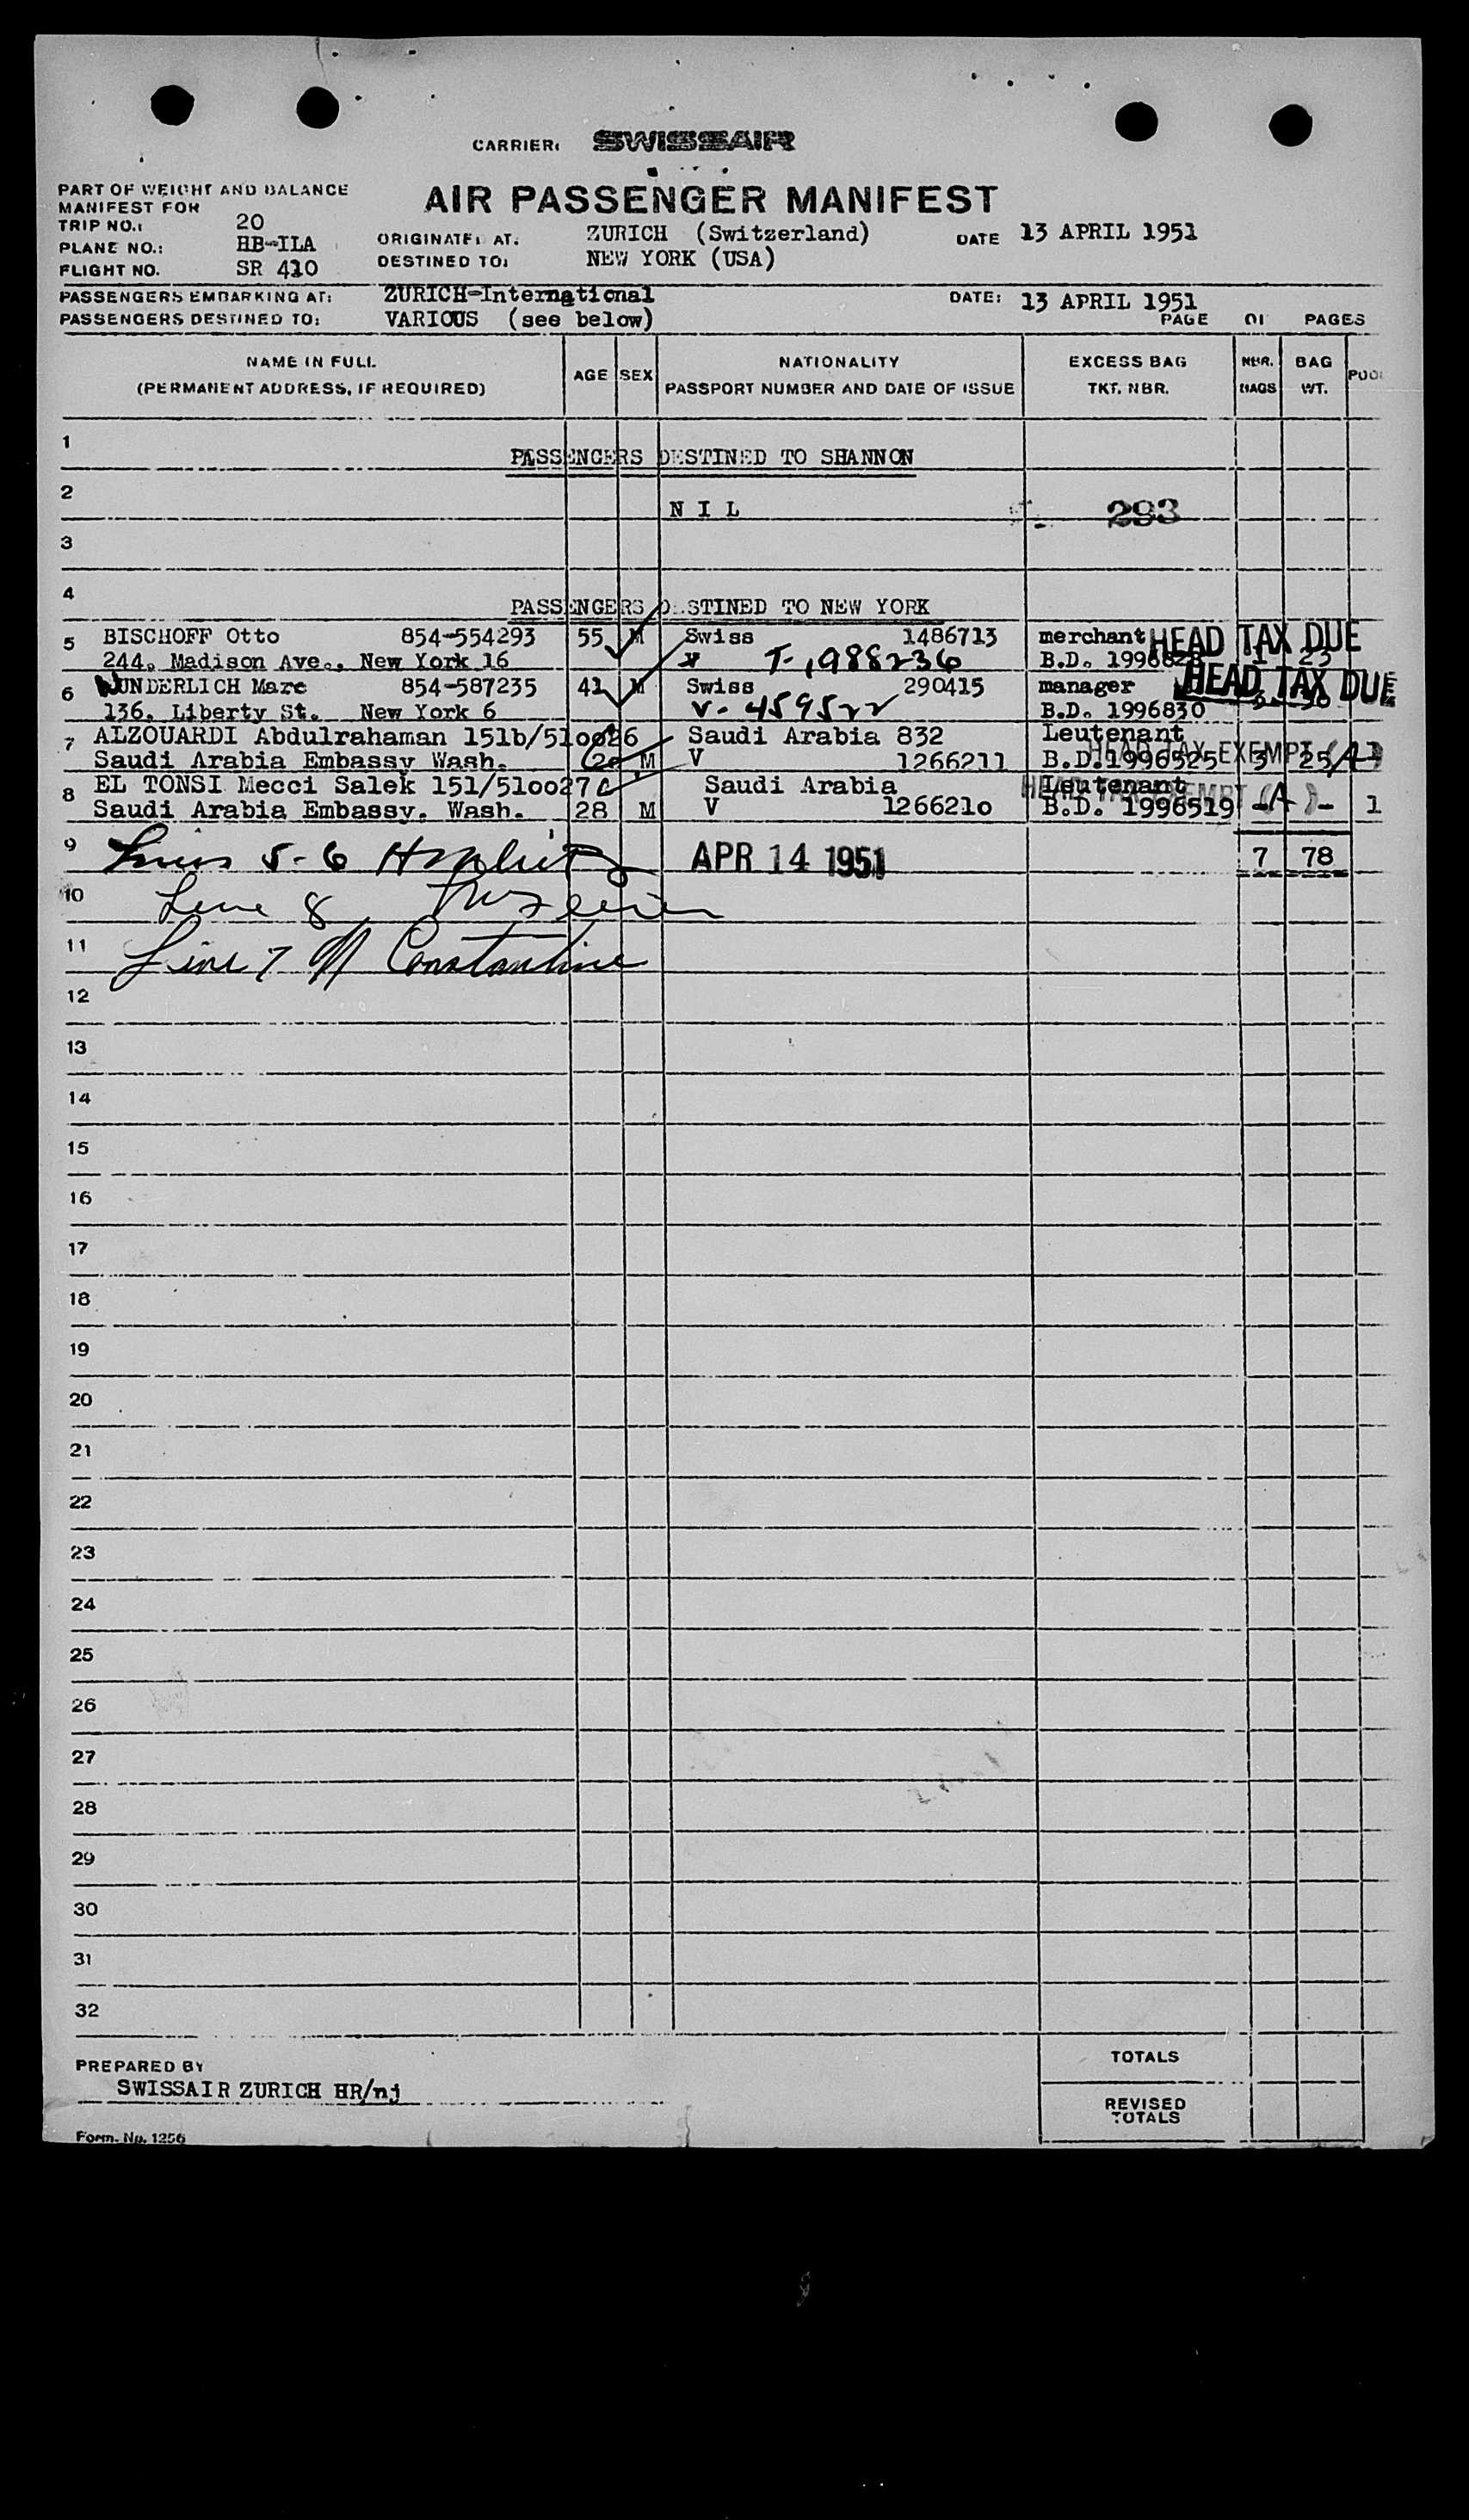 CARRIER: SWISSAIR
PART OF WEIGHT AND BALANCE
MANIFEST FOR
AIR PASSENGER MANIFEST
TRIP NO.: 20
PLANE NO.: HB-ILA
FLIGHT NO. SR 410
ORIGINATE AT: ZURICH (Switzerland)
DESTINED TO: NEW YORK (USA)
DATE 13 APRIL 1951
PASSENGERS EMBARKING AT: ZURICH-International
DATE: 13 APRIL 1951
PASSENGERS DESTINED TO: VARIOUS (see below)
PAGE OF PAGES
NAME IN FULL AGE SEX NATIONALITY EXCESS BAG NBR. BAG POOL
(PERMANENT ADDRESS, IF REQUIRED) PASSPORT NUMBER AND DATE OF ISSUE TKT. NBR. BAGS WT.
1
PASSENGERS DESTINED TO SHANNON
2
N I L 293
3
4
PASSENGERS DESTINED TO NEW YORK
5 BISCHOFF Otto 854-554293 55 M Swiss 1486713 merchant HEAD TAX DUE
244. Madison Ave., New York 16 V T-1988236 B.D. 1996828 1 23
6 WUNDERLICH Marc 854-587235 41 M Swiss 290415 manager HEAD TAX DUE
136. Liberty St. New York 6 V- 459522 B.D. 1996830
7 ALZOUARDI Abdulrahaman 151b/510026 Saudi Arabia 832 Leutenant
HEAD TAX EXEMPT
Saudi Arabia Embassy Wash. M V 1266211 B.D.1996525 3 25
8 EL TONSI Mecci Salek 151/510027 Saudi Arabia Leutenant
HEAD TAX EXEMPT (A)
Saudi Arabia Embassy. Wash. 28 M V 1266210 B.D. 1996519 - - 1
9 Lines 5-6 APR 14 1951 7 78
10 Line 8
11 Line 7 Constantine
12
13
14
15
16
17
18
19
20
21
22
23
24
25
26
27
28
29
30
31
32
TOTALS
PREPARED BY
SWISSAIR ZURICH HR/nj
REVISED
TOTALS
Form. No. 1256